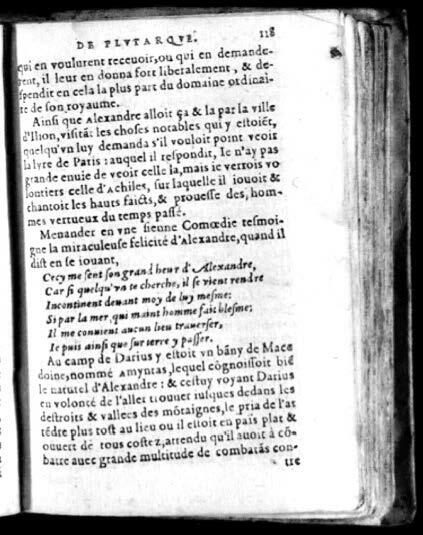 DE PLVTARQVE. 118
qui en voulurent receuoir, ou qui en demande-
rent, il leur en donna fort liberalement, & de-
spendit en cela la plus part du domaine ordinai-
re de son royaume.
Ainsi que Alexandre alloit çà & la par la ville
d'Ilion, visitāt les choses notables qui y estoiēt,
quelqu'vn luy demanda s'il vouloit point veoir
la lyre de Paris: auquel il respondit, Ie n'ay pas
grande enuie de veoir celle la, mais ie verrois vo
lontiers celle d'Achiles, sur laquelle il iouoit &
chantoit les hauts faicts, & prouesse des, hom-
mes vertueux du temps passé.
Menander en vne sienne Comœdie tesmoi-
gne la miraculeuse felicité d'Alexandre, quand il
dist en se iouant,
Cecy me sent son grand heur d'Alexandre,
Car si quelqu'vn te cherche, il se vient rendre
Incontinent deuant moy de luy mesme:
Si par la mer, qui maint homme fait blesme;
Il me conuient aucun lieu trauerser,
Ie puis ainsi que sur terre y passer.
Au camp de Darius y estoit vn bāny de Mace
doine, nommé Amyntas, lequel cōgnoissoit biē
le naturel d'Alexandre: & cestuy voyant Darius
en volonté de l'aller trouuer iusques dedans les
destroits & vallees des mōtaignes, le pria de l'at
tēdre plus tost au lieu ou il estoit en païs plat &
ouuert de tous costez, attendu qu'il auoit à cō-
batre auec grande multitude de combatās con-
tre